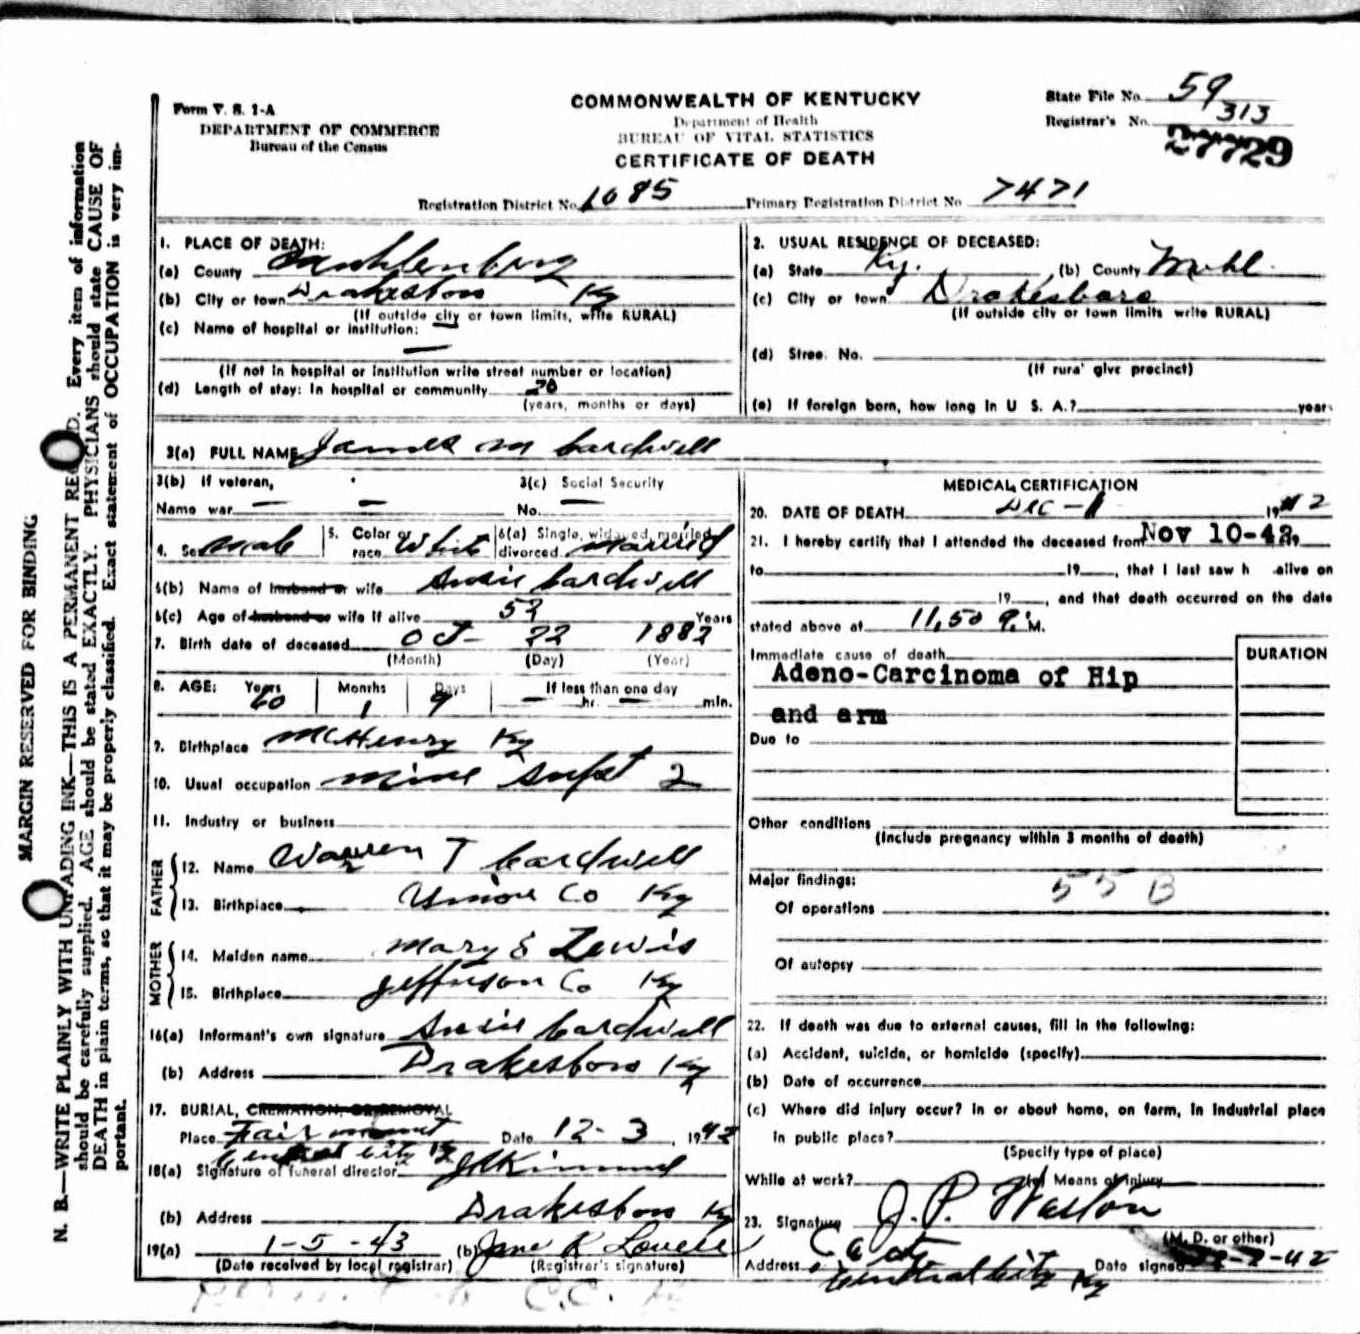 Form V. S. 1-A
DEPARTMENT OF COMMERCE
Bureau of the Census
COMMONWEALTH OF KENTUCKY
Department of Health
BUREAU OF VITAL STATISTICS
CERTIFICATE OF DEATH
State File No. 59
Registrar's No. 313
27729
Registration District No. 1085 Primary Registration District No 7471
1. PLACE OF DEATH:
(a) County Muhlenberg
(b) City or town Drakesboro Ky
(If outside city or town limits, write RURAL)
(c) Name of hospital or institution: —
—
(If not in hospital or institution write street number or location)
(d) Length of stay: In hospital or community 20
(years, months or days)
2. USUAL RESIDENCE OF DECEASED:
(a) State Ky. (b) County Muhl.
(c) City or town Drakesboro
(If outside city or town limits write RURAL)
(d) Stree. No.
(If rura' give precinct)
(e) If foreign born, how long in U S. A.? years
3(a) FULL NAME James M Cardwell
3(b) If veteran, 3(c) Social Security
Name war — — No. —
4. Sex Male 5. Color or race White 6(a) Single, widowed, married, divorced Married
6(b) Name of husband or wife Susie Cardwell
6(c) Age of husband or wife if alive 52 Years
7. Birth date of deceased Oct- 22 1882
(Month) (Day) (Year)
8. AGE: Years Months Days If less than one day
60 1 9 — hr. — min.
9. Birthplace McHenry Ky
10. Usual occupation Mine Supt 2
11. Industry or business
FATHER
12. Name Warren T Cardwell
13. Birthplace Union Co Ky
MOTHER
14. Maiden name Mary E Lewis
15. Birthplace Jefferson Co Ky
16(a) Informant's own signature Susie Cardwell
(b) Address Drakesboro Ky
17. BURIAL, CREMATION, OR REMOVAL
Place Fairmount Date 12-3, 1942
Central City Ky
18(a) Signature of funeral director J Kimmel
(b) Address Drakesboro Ky
19(a) 1-5-43 (b) Jane R Lovell
(Date received by local registrar) (Registrar's signature)
MEDICAL CERTIFICATION
20. DATE OF DEATH Dec-1 1942
21. I hereby certify that I attended the deceased from Nov 10-42,
to 19 , that I last saw h alive on
19 , and that death occurred on the date
stated above at 11,50 P. M.
Immediate cause of death DURATION
Adeno-Carcinoma of Hip
and arm
Due to
Other conditions
(Include pregnancy within 3 months of death)
Major findings: 55 B
Of operations
Of autopsy
22. If death was due to external causes, fill in the following:
(a) Accident, suicide, or homicide (specify)
(b) Date of occurrence
(c) Where did injury occur? In or about home, on farm, in industrial place
in public place?
(Specify type of place)
While at work? (e) Means of injury
23. Signature J. P. Walton
(M. D. or other)
Address Central City Ky Date signed
MARGIN RESERVED FOR BINDING
N. B.—WRITE PLAINLY WITH UNFADING INK—THIS IS A PERMANENT RECORD. Every item of information
should be carefully supplied. AGE should be stated EXACTLY. PHYSICIANS should state CAUSE OF
DEATH in plain terms, so that it may be properly classified. Exact statement of OCCUPATION is very im-
portant.